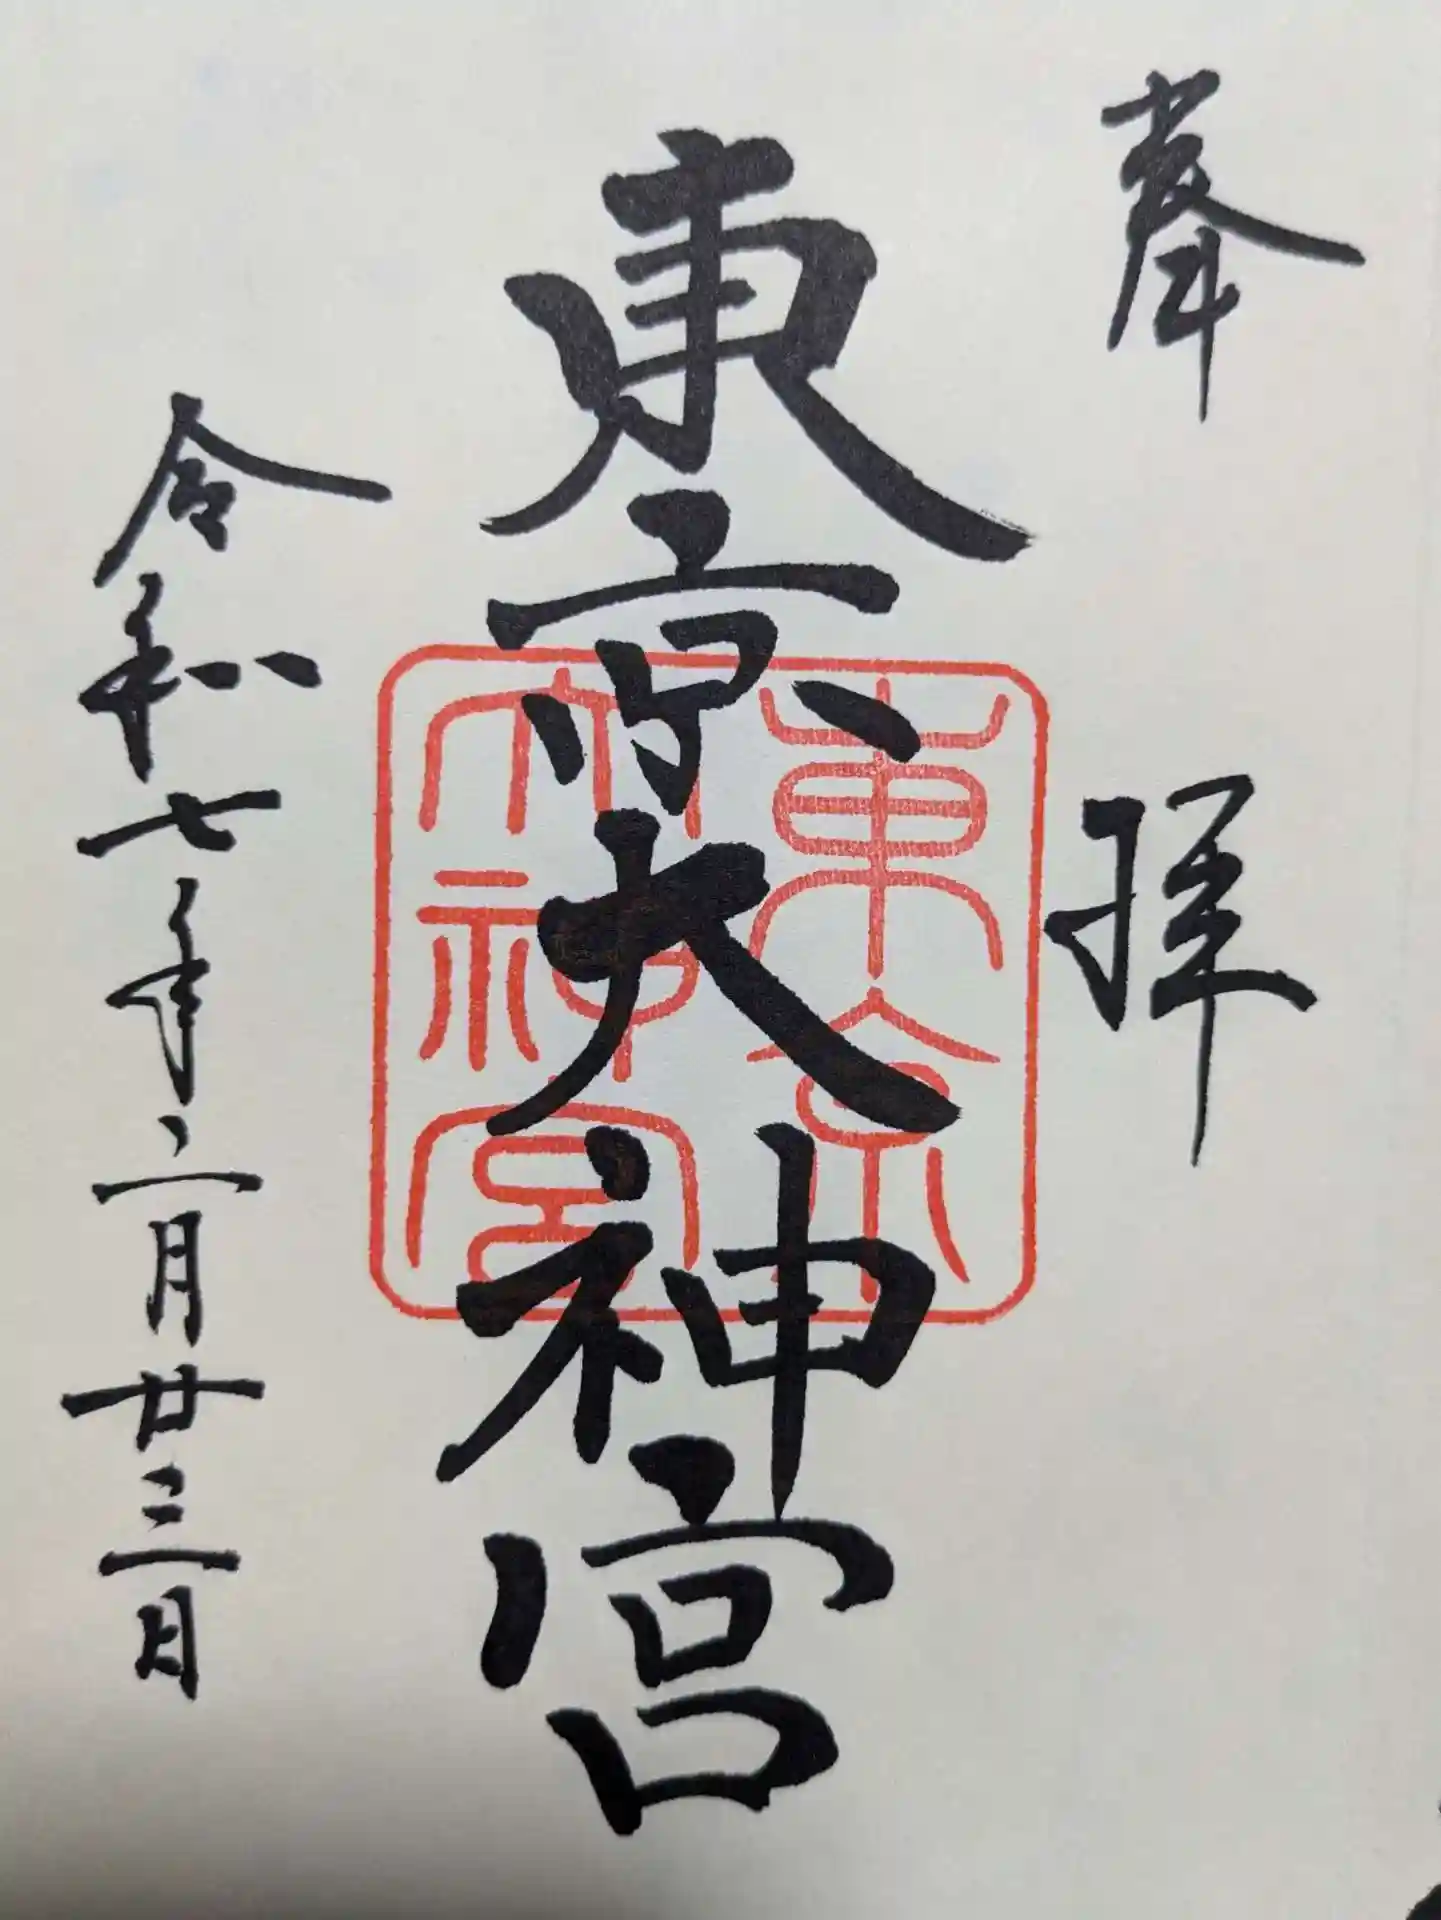 奉拝
東京大神宮
東京大神宮
令和七年二月廿三日